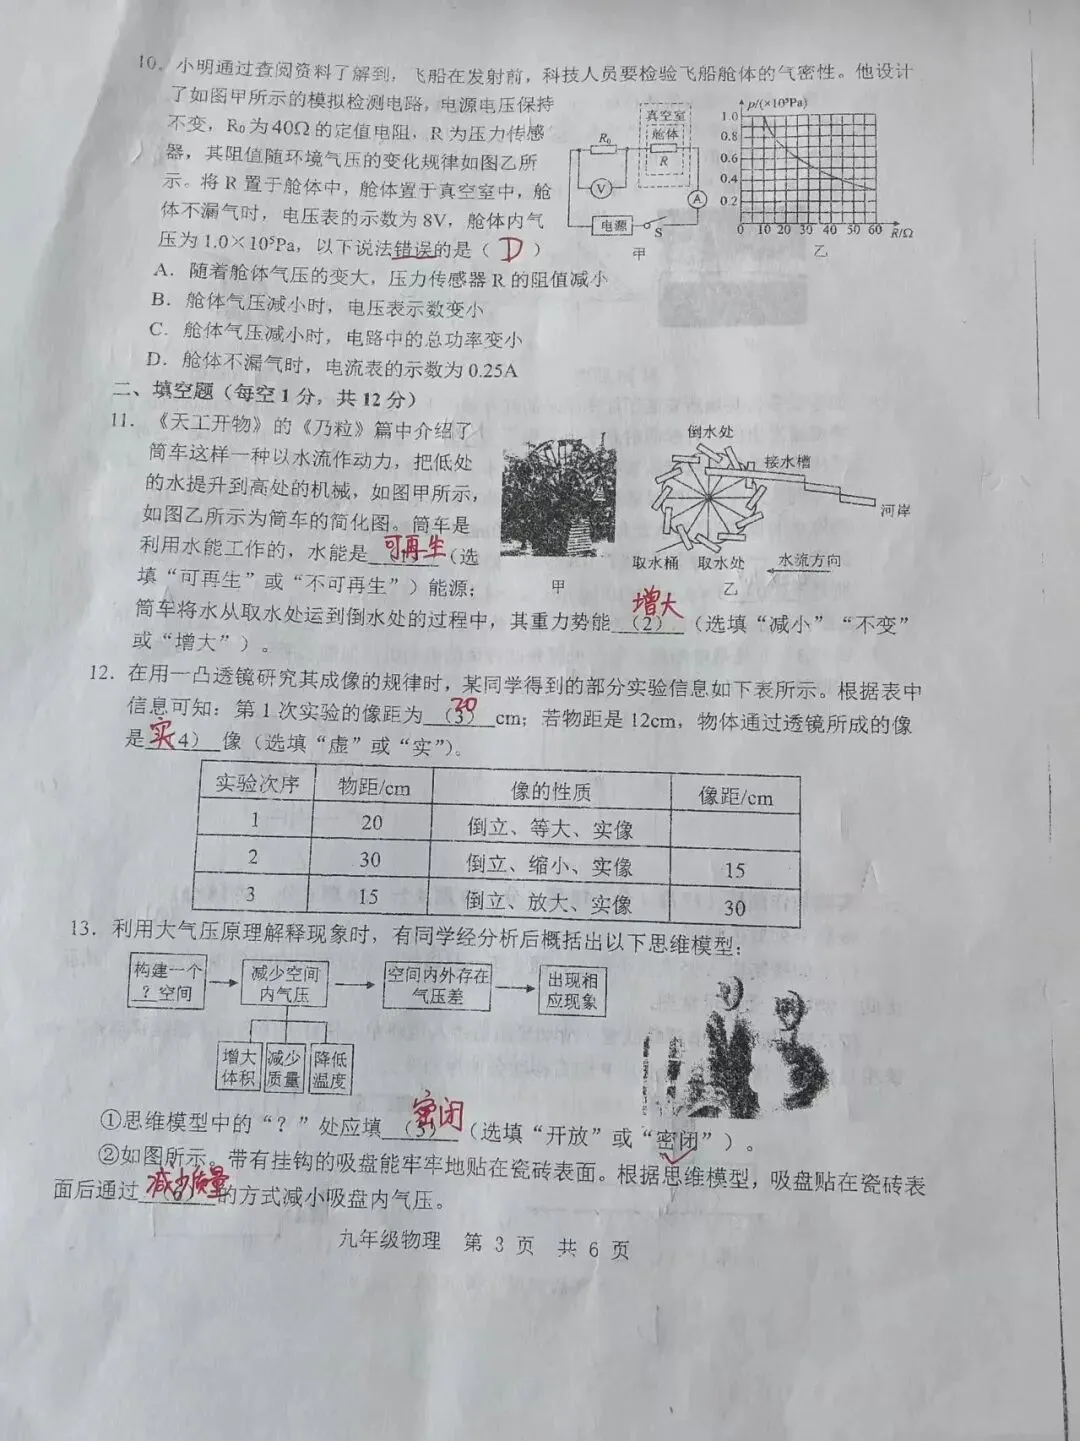 10. 小明通过查阅资料了解到，飞船在发射前，科技人员要检验飞船舱体的气密性。他设计
了如图甲所示的模拟检测电路，电源电压保持
不变，R₀为40Ω的定值电阻，R为压力传感
器，其阻值随环境气压的变化规律如图乙所
示。将R置于舱体中，舱体置于真空室中，舱
体不漏气时，电压表的示数为8V，舱体内气
压为1.0×10⁵Pa，以下说法错误的是（ D ）
真空室
舱体
R₀
R
V
A
电源
S
甲
p/(×10⁵Pa)
1.0
0.8
0.6
0.4
0.2
0 10 20 30 40 50 60 R/Ω
乙
A. 随着舱体气压的变大，压力传感器R的阻值减小
B. 舱体气压减小时，电压表示数变小
C. 舱体气压减小时，电路中的总功率变小
D. 舱体不漏气时，电流表的示数为0.25A
二、填空题（每空1分，共12分）
11. 《天工开物》的《乃粒》篇中介绍了
筒车这样一种以水流作动力，把低处
的水提升到高处的机械，如图甲所示，
如图乙所示为筒车的简化图。筒车是
利用水能工作的，水能是 可再生 （选
填“可再生”或“不可再生”）能源；
筒车将水从取水处运到倒水处的过程中，其重力势能 （2） 增大 （选填“减小”“不变”
或“增大”）。
倒水处
接水槽
河岸
取水桶 取水处 水流方向
甲 乙
12. 在用一凸透镜研究其成像的规律时，某同学得到的部分实验信息如下表所示。根据表中
信息可知：第1次实验的像距为 （3） 20 cm；若物距是12cm，物体通过透镜所成的像
是 实 4） 像（选填“虚”或“实”）。
实验次序 物距/cm 像的性质 像距/cm
1 20 倒立、等大、实像
2 30 倒立、缩小、实像 15
3 15 倒立、放大、实像 30
13. 利用大气压原理解释现象时，有同学经分析后概括出以下思维模型：
构建一个
？空间
减少空间
内气压
空间内外存在
气压差
出现相
应现象
增大
体积
减少
质量
降低
温度
①思维模型中的“？”处应填 （5） 密闭 （选填“开放”或“密闭”）。
②如图所示。带有挂钩的吸盘能牢牢地贴在瓷砖表面。根据思维模型，吸盘贴在瓷砖表
面后通过 （6） 减少质量 的方式减小吸盘内气压。
九年级物理 第 3 页 共 6 页